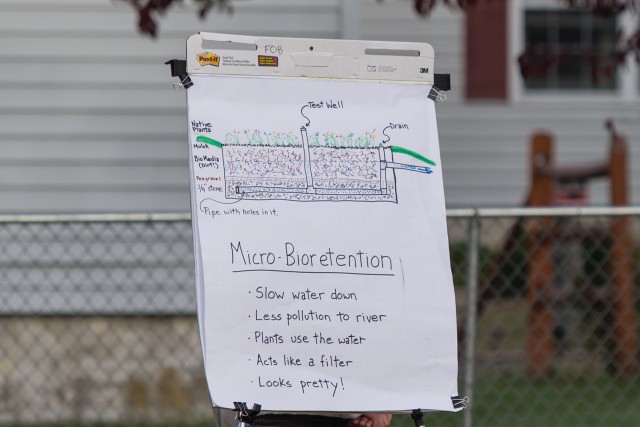 Post-it
FOB
3M
Test Well
Native
Plants
Drain
Mulch
BioMedia
(Dirt!)
Pea gravel
3/4" stone
Pipe with holes in it.
Micro-Bioretention
· Slow water down
· Less pollution to river
· Plants use the water
· Acts like a filter
· Looks pretty!